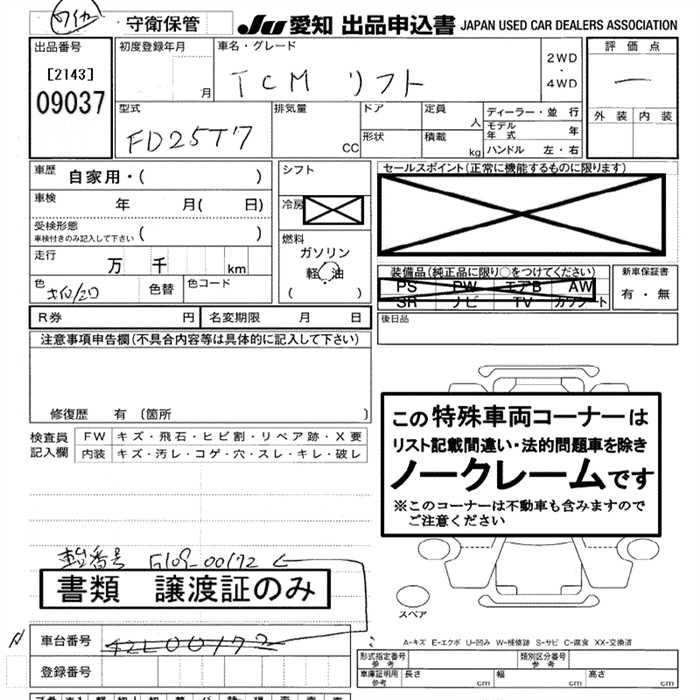 守衛保管
JU 愛知 出品申込書 JAPAN USED CAR DEALERS ASSOCIATION
出品番号
[2143]
09037
初度登録年月
月
車名・グレード
TCM リフト
2WD
・
4WD
評価点
ー
外装 内装
型式
FD25T7
排気量
CC
ドア
形状
定員
人
積載
kg
ディーラー・並行
モデル年式 年
ハンドル 左・右
車歴 自家用・( )
車検 年 月( 日)
受検形態
車検付きのみ記入して下さい ( )
走行 万 千 km
色
色替
色コード
シフト
冷房
燃料
ガソリン
軽油
( )
セールスポイント(正常に機能するものに限ります)
装備品(純正品に限り○をつけてください)
PS PW エアB AW
SR ナビ TV カワシート
新車保証書
有・無
後日品
R券 円 名変期限 月 日
注意事項申告欄(不具合内容等は具体的に記入して下さい)
修復歴 有 (箇所 )
検査員
記入欄
FW キズ・飛石・ヒビ割・リペア跡・X要
内装 キズ・汚レ・コゲ・穴・スレ・キレ・破レ
この特殊車両コーナーは
リスト記載間違い・法的問題車を除き
ノークレームです
※このコーナーは不動車も含みますので
ご注意ください
車台番号
書類 譲渡証のみ
スペア
車台番号
登録番号
A-キズ E-エクボ U-凹み W-補修跡 S-サビ C-腐食 XX-交換済
形式指定番号
参考
類別区分番号
参考
車庫証明用
参考
長さ cm 幅 cm 高さ cm